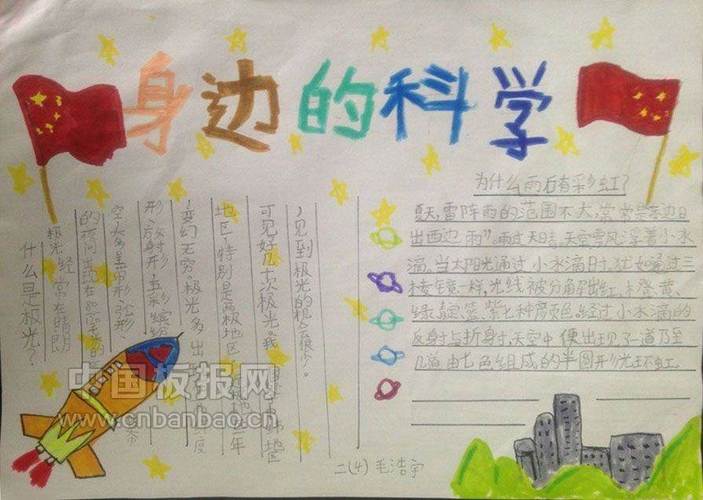 身边的科学
为什么雨后有彩虹?
夏天,雷阵雨的范围不大,常常"东边日
出西边雨"。雨过天晴,天空雾风浮着小水
滴。当太阳光通过小水滴时,犹如通过三
棱镜一样,光线被分解出红、橙、黄、
绿、靛、蓝、紫七种颜色。经过小水滴的
反射与折射,天空中便出现了一道乃至
几道由七色组成的半圆形光环彩虹。
什么是极光?
极光经常在晴朗
的夜间出现在
空大多呈带形、弧形
形、放射形五彩缤纷
变幻无穷。极光多出
地区,特别是高极地区
可见好几十次极光。我
见到极光的机会很少。
中国板报网
www.cnbanbao.cn
二(4) 毛浩宇